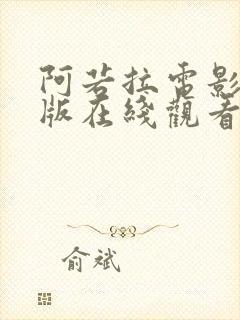 阿若拉電影
版在綫觀看
俞斌